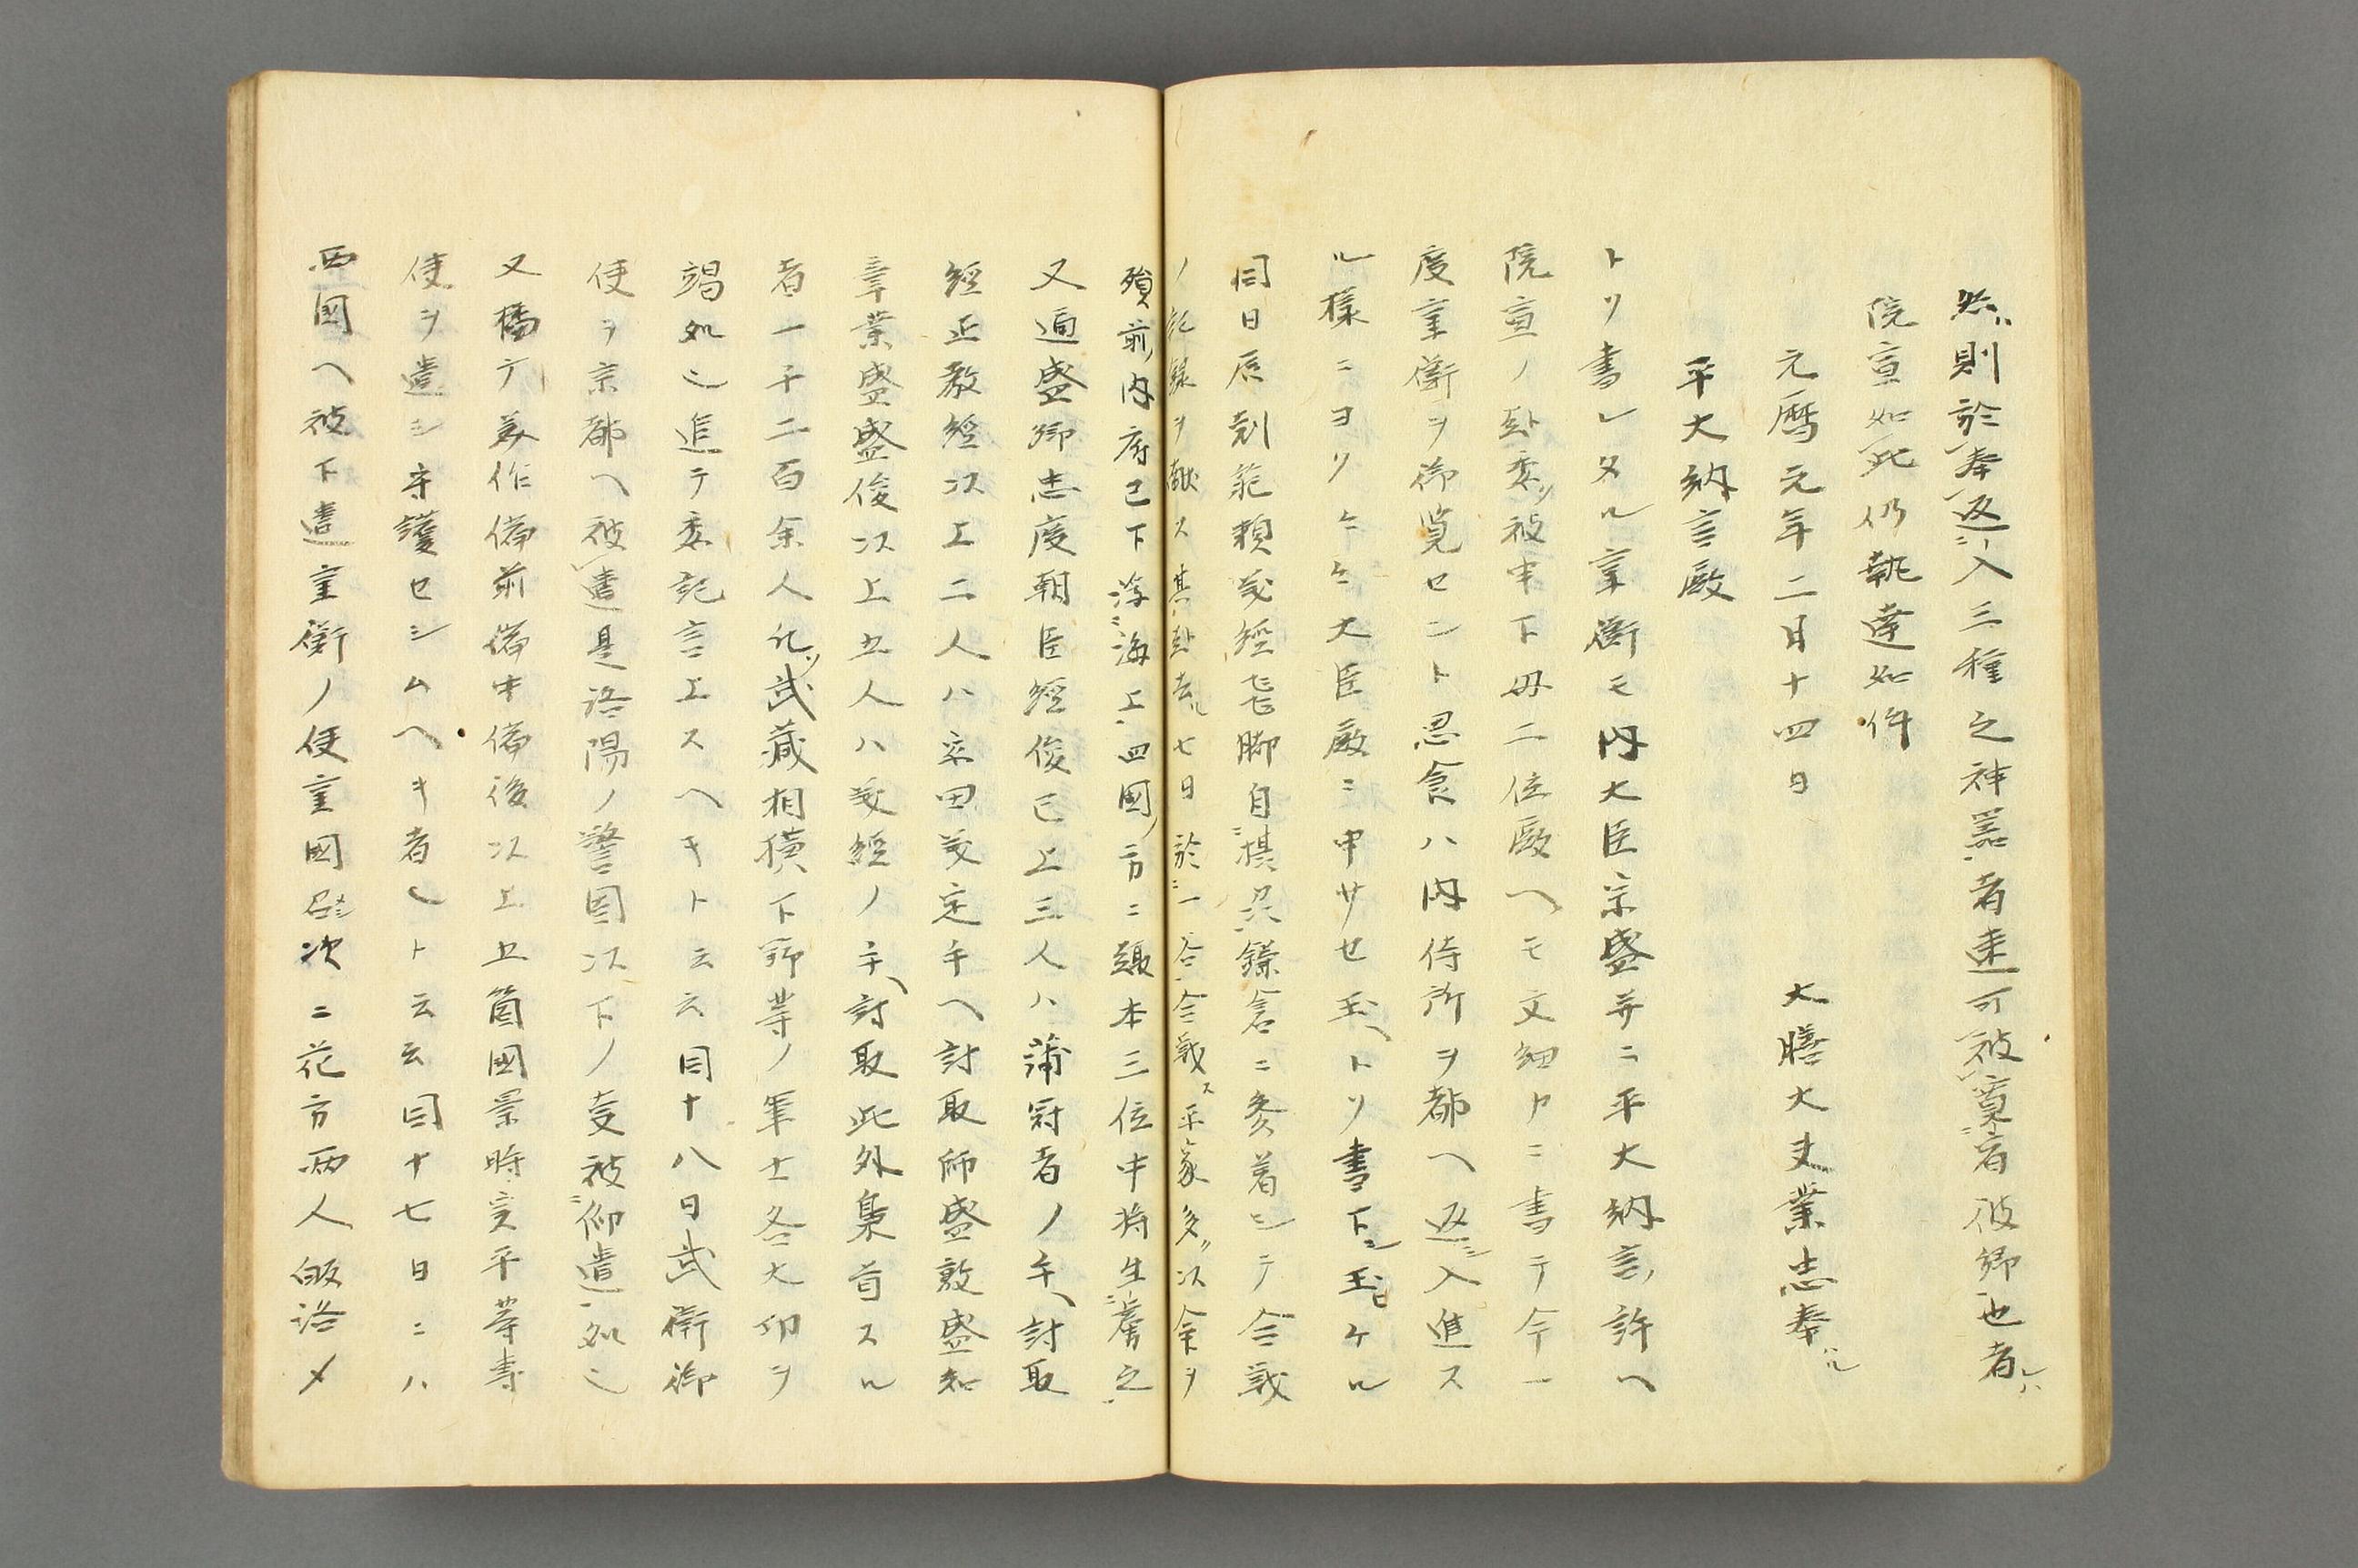 然ハ則於奉返シ入三種之神器者速可被寛宥彼卿也者レハ
院宣如此仍執達如件
元暦元年二月十四日　大膳大夫業忠奉ル
平大納言殿
トソ書レタル重衡モ内大臣宗盛并ニ平大納言ノ許ヘ
院宣ノ趣委ソ被申下母二位殿ヘモ文細カニ書テ今一
度重衡ヲ御覧セント思食ハ内侍所ヲ都ヘ返シ入進ス
ル様ニヨリケニケニ大臣殿ニ申サセ玉ヘトソ書下シ玉ヒケル
同日辰刻範頼義経飛脚自摂州鎌倉ニ参着シテ合戦
ノ記録ヲ献ス其趣去ル七日於一谷合戦ス平家多ソ以余ヲ
殞前内府已下浮海上四國ノ方ニ趣本三位中将生虜之
又通盛卿忠度朝臣經俊已上三人ハ蒲冠者ノ手ヘ討取
經正教經以上二人ハ安田義定手ヘ討取師盛敦盛知
章業盛盛俊以上五人ハ義經ノ手ヘ討取此外梟首スル
者一千二百余人凡ソ武蔵相模下野等ノ軍士各大功ヲ
竭処也追テ委記言上スヘキト云云同十八日武衛御
使ヲ京都ヘ被遣是洛陽ノ警固以下ノ支被仰遣処也
又播广美作備前備中備後以上五箇國景時實平等専
使ヲ遣シ守護セシムヘキ者也ト云云同十七日ニハ
西國ヘ被下遣重衡ノ使重國次ニ花方両人皈洛〆